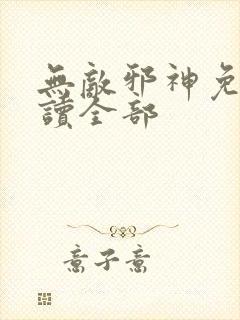 無敵邪神免
讀全部
意子意